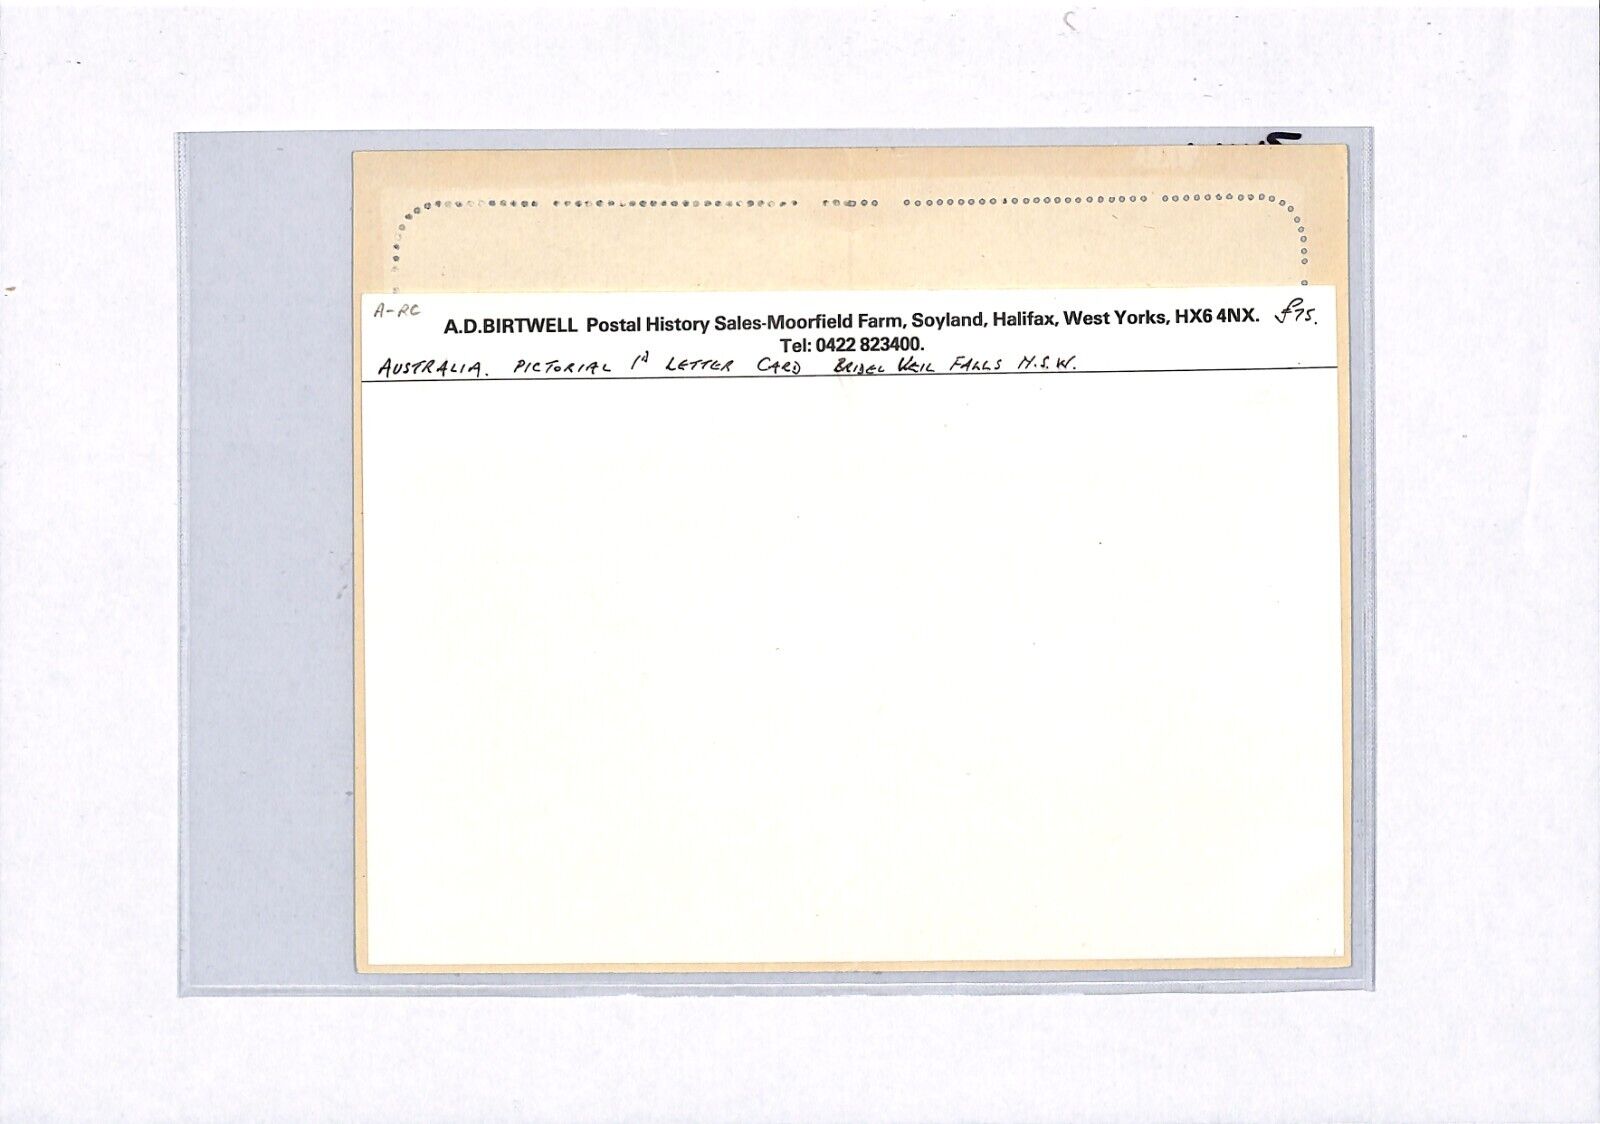 A-RC
A.D.BIRTWELL Postal History Sales-Moorfield Farm, Soyland, Halifax, West Yorks, HX6 4NX. £75.
Tel: 0422 823400.
AUSTRALIA. PICTORIAL 1d LETTER CARD BRIDEL VEIL FALLS N.S.W.